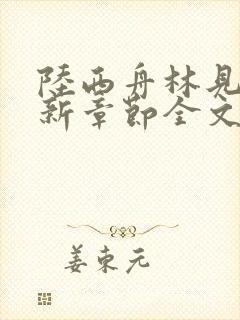 陸西舟林見
新章節全文
姜東元